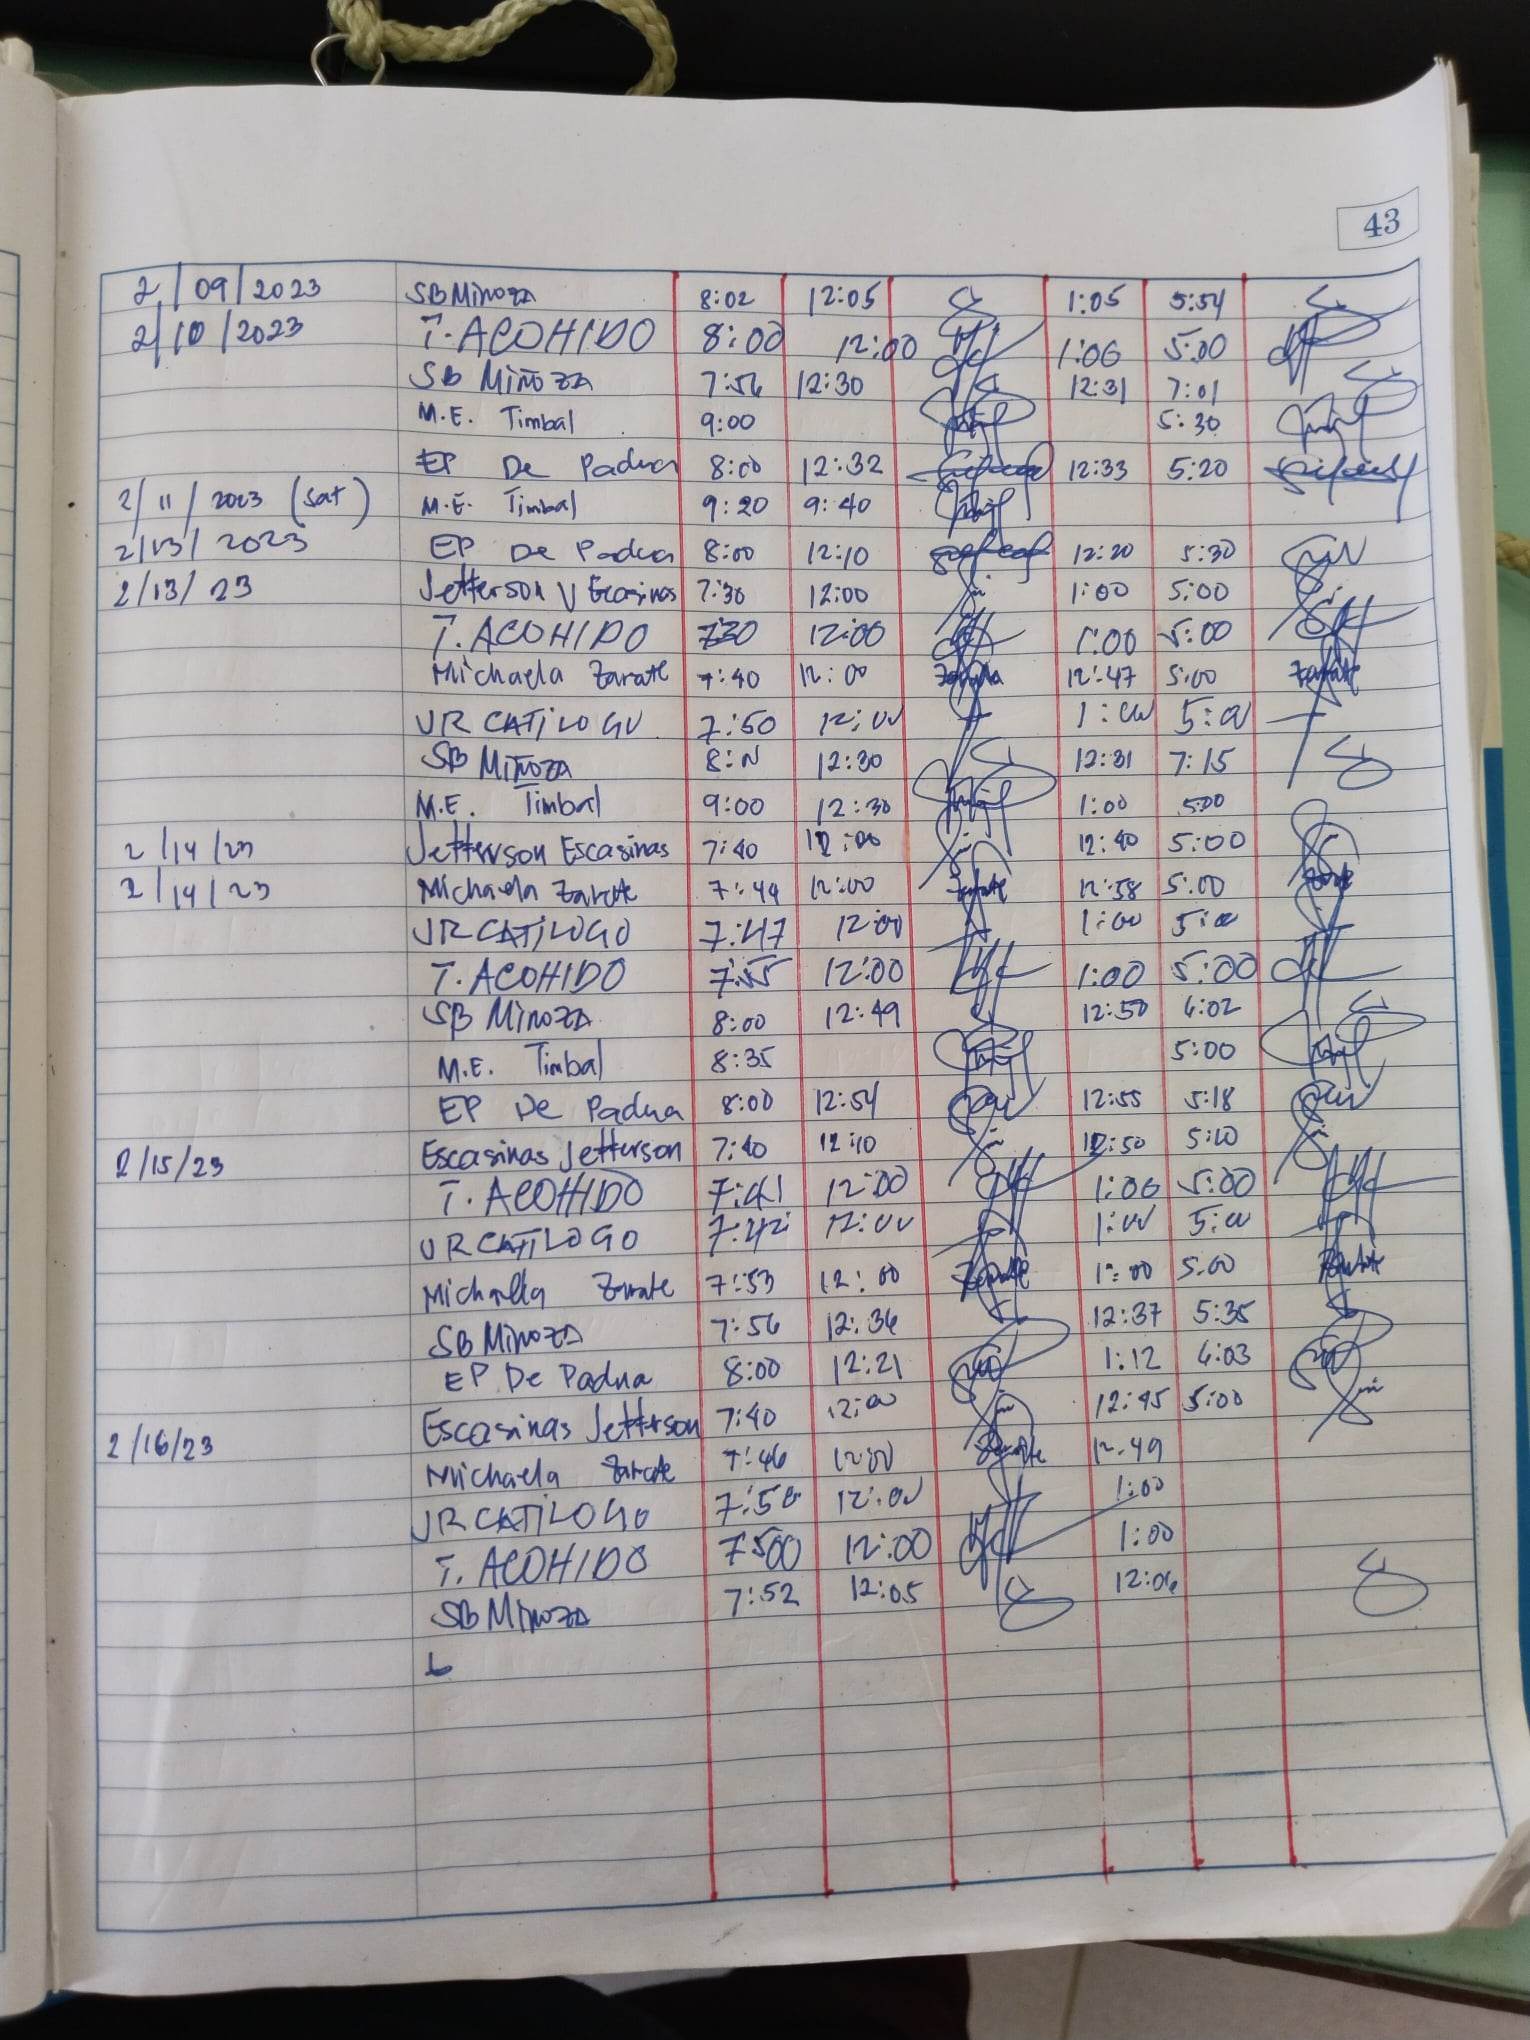 43
2/09/2023 SB Minoza 8:02 12:05 1:05 5:54
2/10/2023 T. ACOHIDO 8:00 12:00 1:00 5:00
SB Miñoza 7:56 12:30 12:31 7:01
M.E. Timbal 9:00 5:30
EP De Padua 8:00 12:32 12:33 5:20
2/11/2023 (Sat) M.E. Timbal 9:20 9:40
2/13/2023 EP De Padua 8:00 12:10 12:20 5:30
2/13/23 Jefferson V Escasinas 7:30 12:00 1:00 5:00
T. ACOHIDO 730 12:00 1:00 5:00
Michaela Zarate 7:40 12:00 12:47 5:00
JR CATILOGO 7:50 12:00 1:00 5:00
SB Miñoza 12:30 12:31 7:15
M.E. Timbal 9:00 12:30 1:00 5:00
2/14/23 Jefferson Escasinas 7:40 12:00 12:40 5:00
2/14/23 Michaela Zarate 7:44 12:00 12:58 5:00
JR CATILOGO 7:47 12:00 1:00 5:00
T. ACOHIDO 7:55 12:00 1:00 5:00
SB Minoza 8:00 12:49 12:50 6:02
M.E. Timbal 8:35 5:00
EP De Padua 8:00 12:54 12:55 5:18
2/15/23 Escasinas Jefferson 7:40 12:10 12:50 5:10
T. ACOHIDO 7:41 12:00 1:00 5:00
JR CATILOGO 7:42 12:00 1:00 5:00
Michaella Zarate 7:53 12:00 1:00 5:00
SB Minoza 7:56 12:36 12:37 5:35
EP De Padua 8:00 12:21 1:12 6:03
2/16/23 Escasinas Jefferson 7:40 12:00 12:45 5:00
Michaela Zarate 7:46 12:00 12:49
JR CATILOGO 7:50 12:00 1:00
T. ACOHIDO 12:00 1:00
SB Minoza 7:52 12:05 12:06